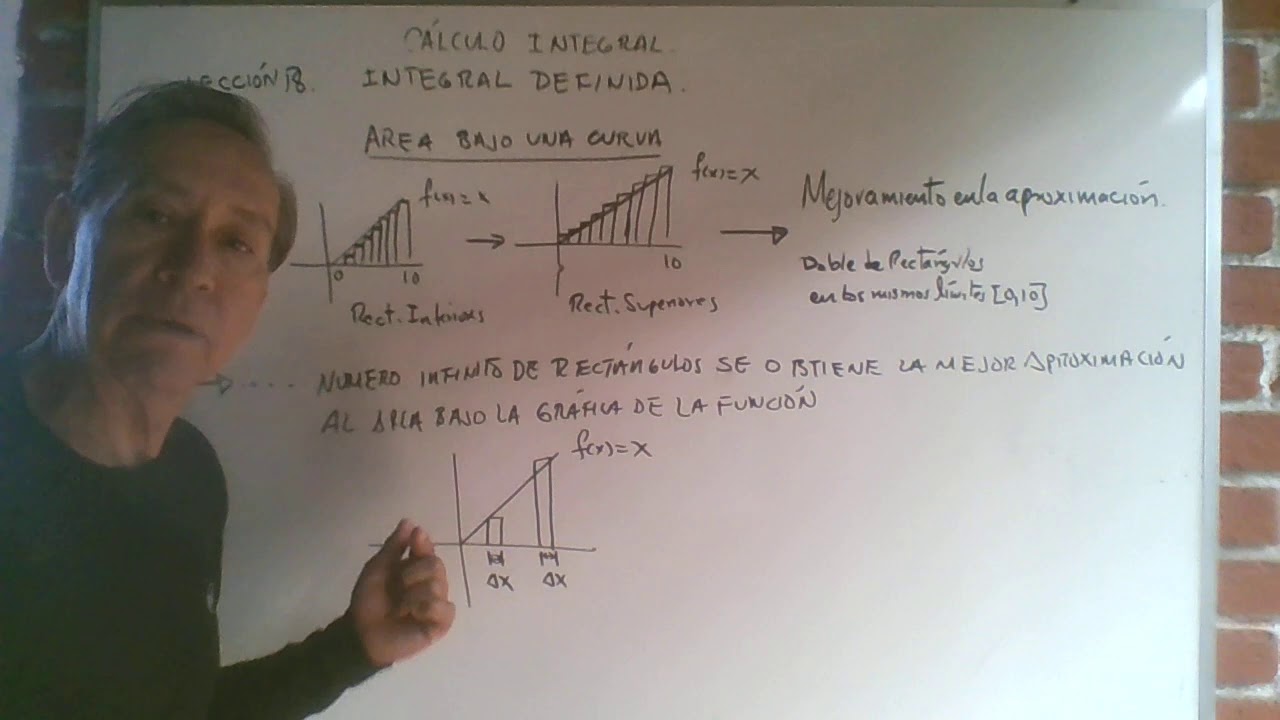 CÁLCULO INTEGRAL.
LECCIÓN 18. INTEGRAL DEFINIDA.
AREA BAJO UNA CURVA
f(x)=x
0
10
Rect. Inferiores
f(x)=x
10
Rect. Superiores
Mejoramiento en la aproximación.
Doble de Rectángulos
en los mismos límites [0,10]
.... NUMERO INFINITO DE RECTÁNGULOS SE OBTIENE LA MEJOR APROXIMACIÓN
AL AREA BAJO LA GRÁFICA DE LA FUNCIÓN
f(x)=x
Δx Δx